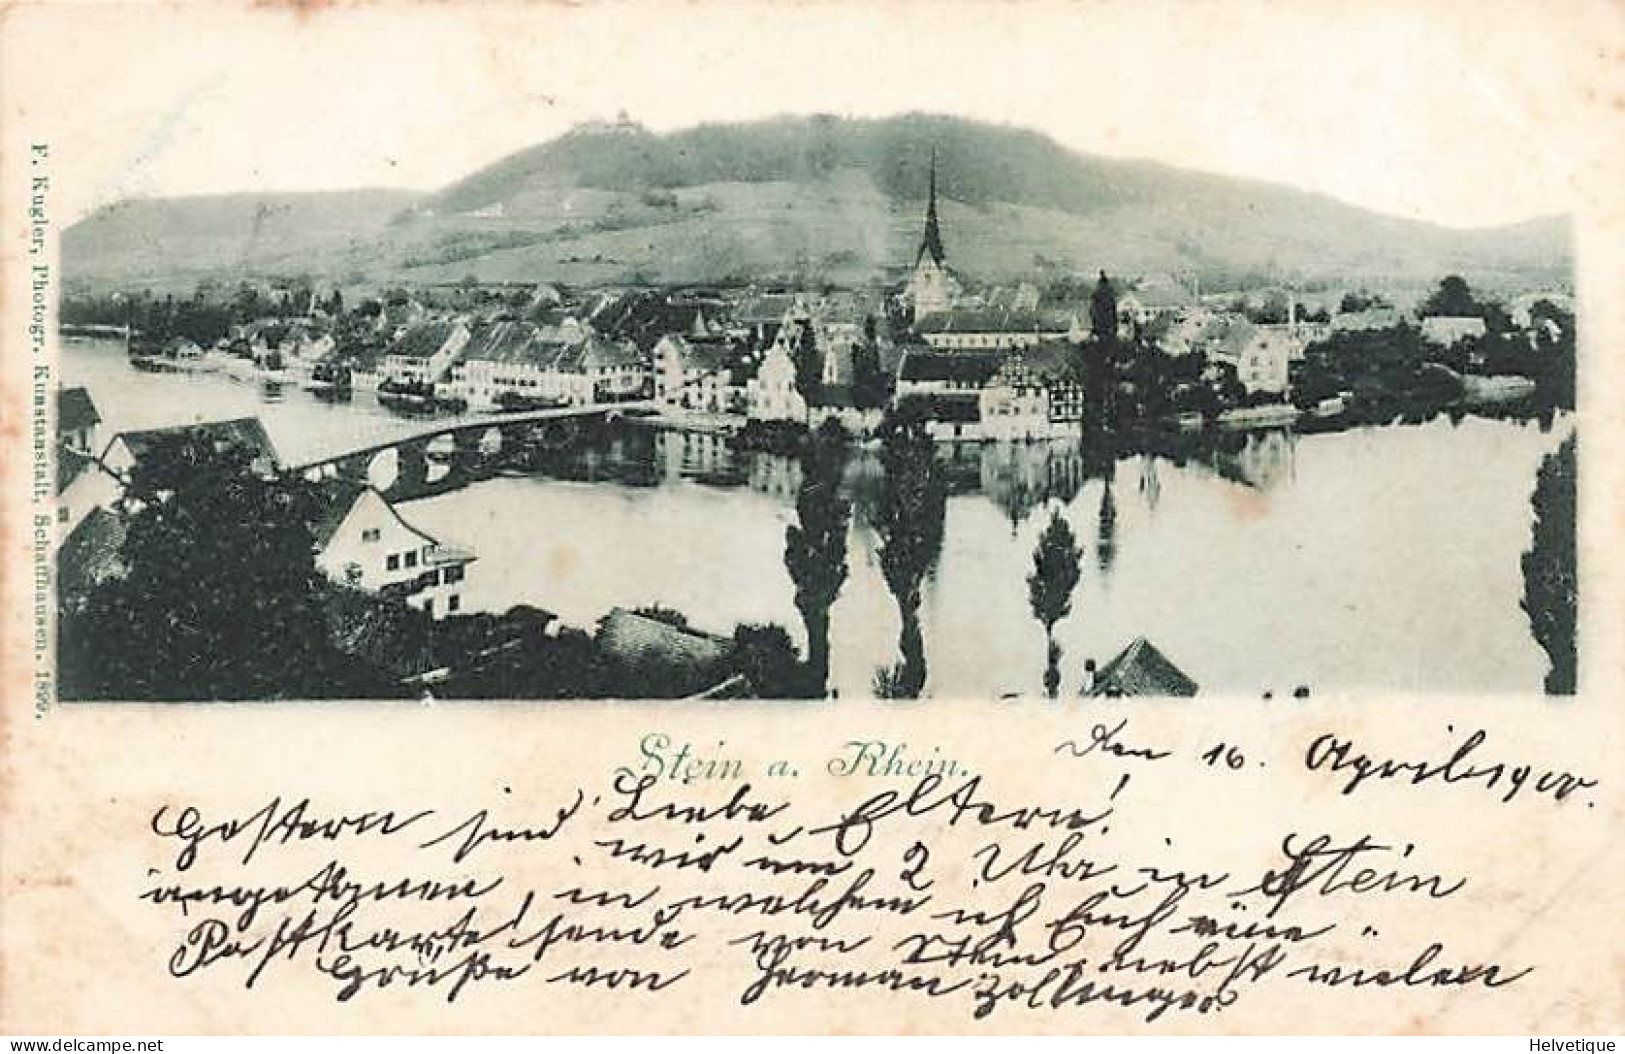 F. Kugler, Photogr. Kunstanstalt, Schaffhausen. 189
Stein a. Rhein.
Den 16. April 1900.
Liebe Eltern!
Gestern sind wir um 2 Uhr in Stein
angekomen, in welchem ich Euch eine
Postkarte sende von Stein, nebst vielen
Grüße von Herman Zollinger
delcampe.net
Helvetique